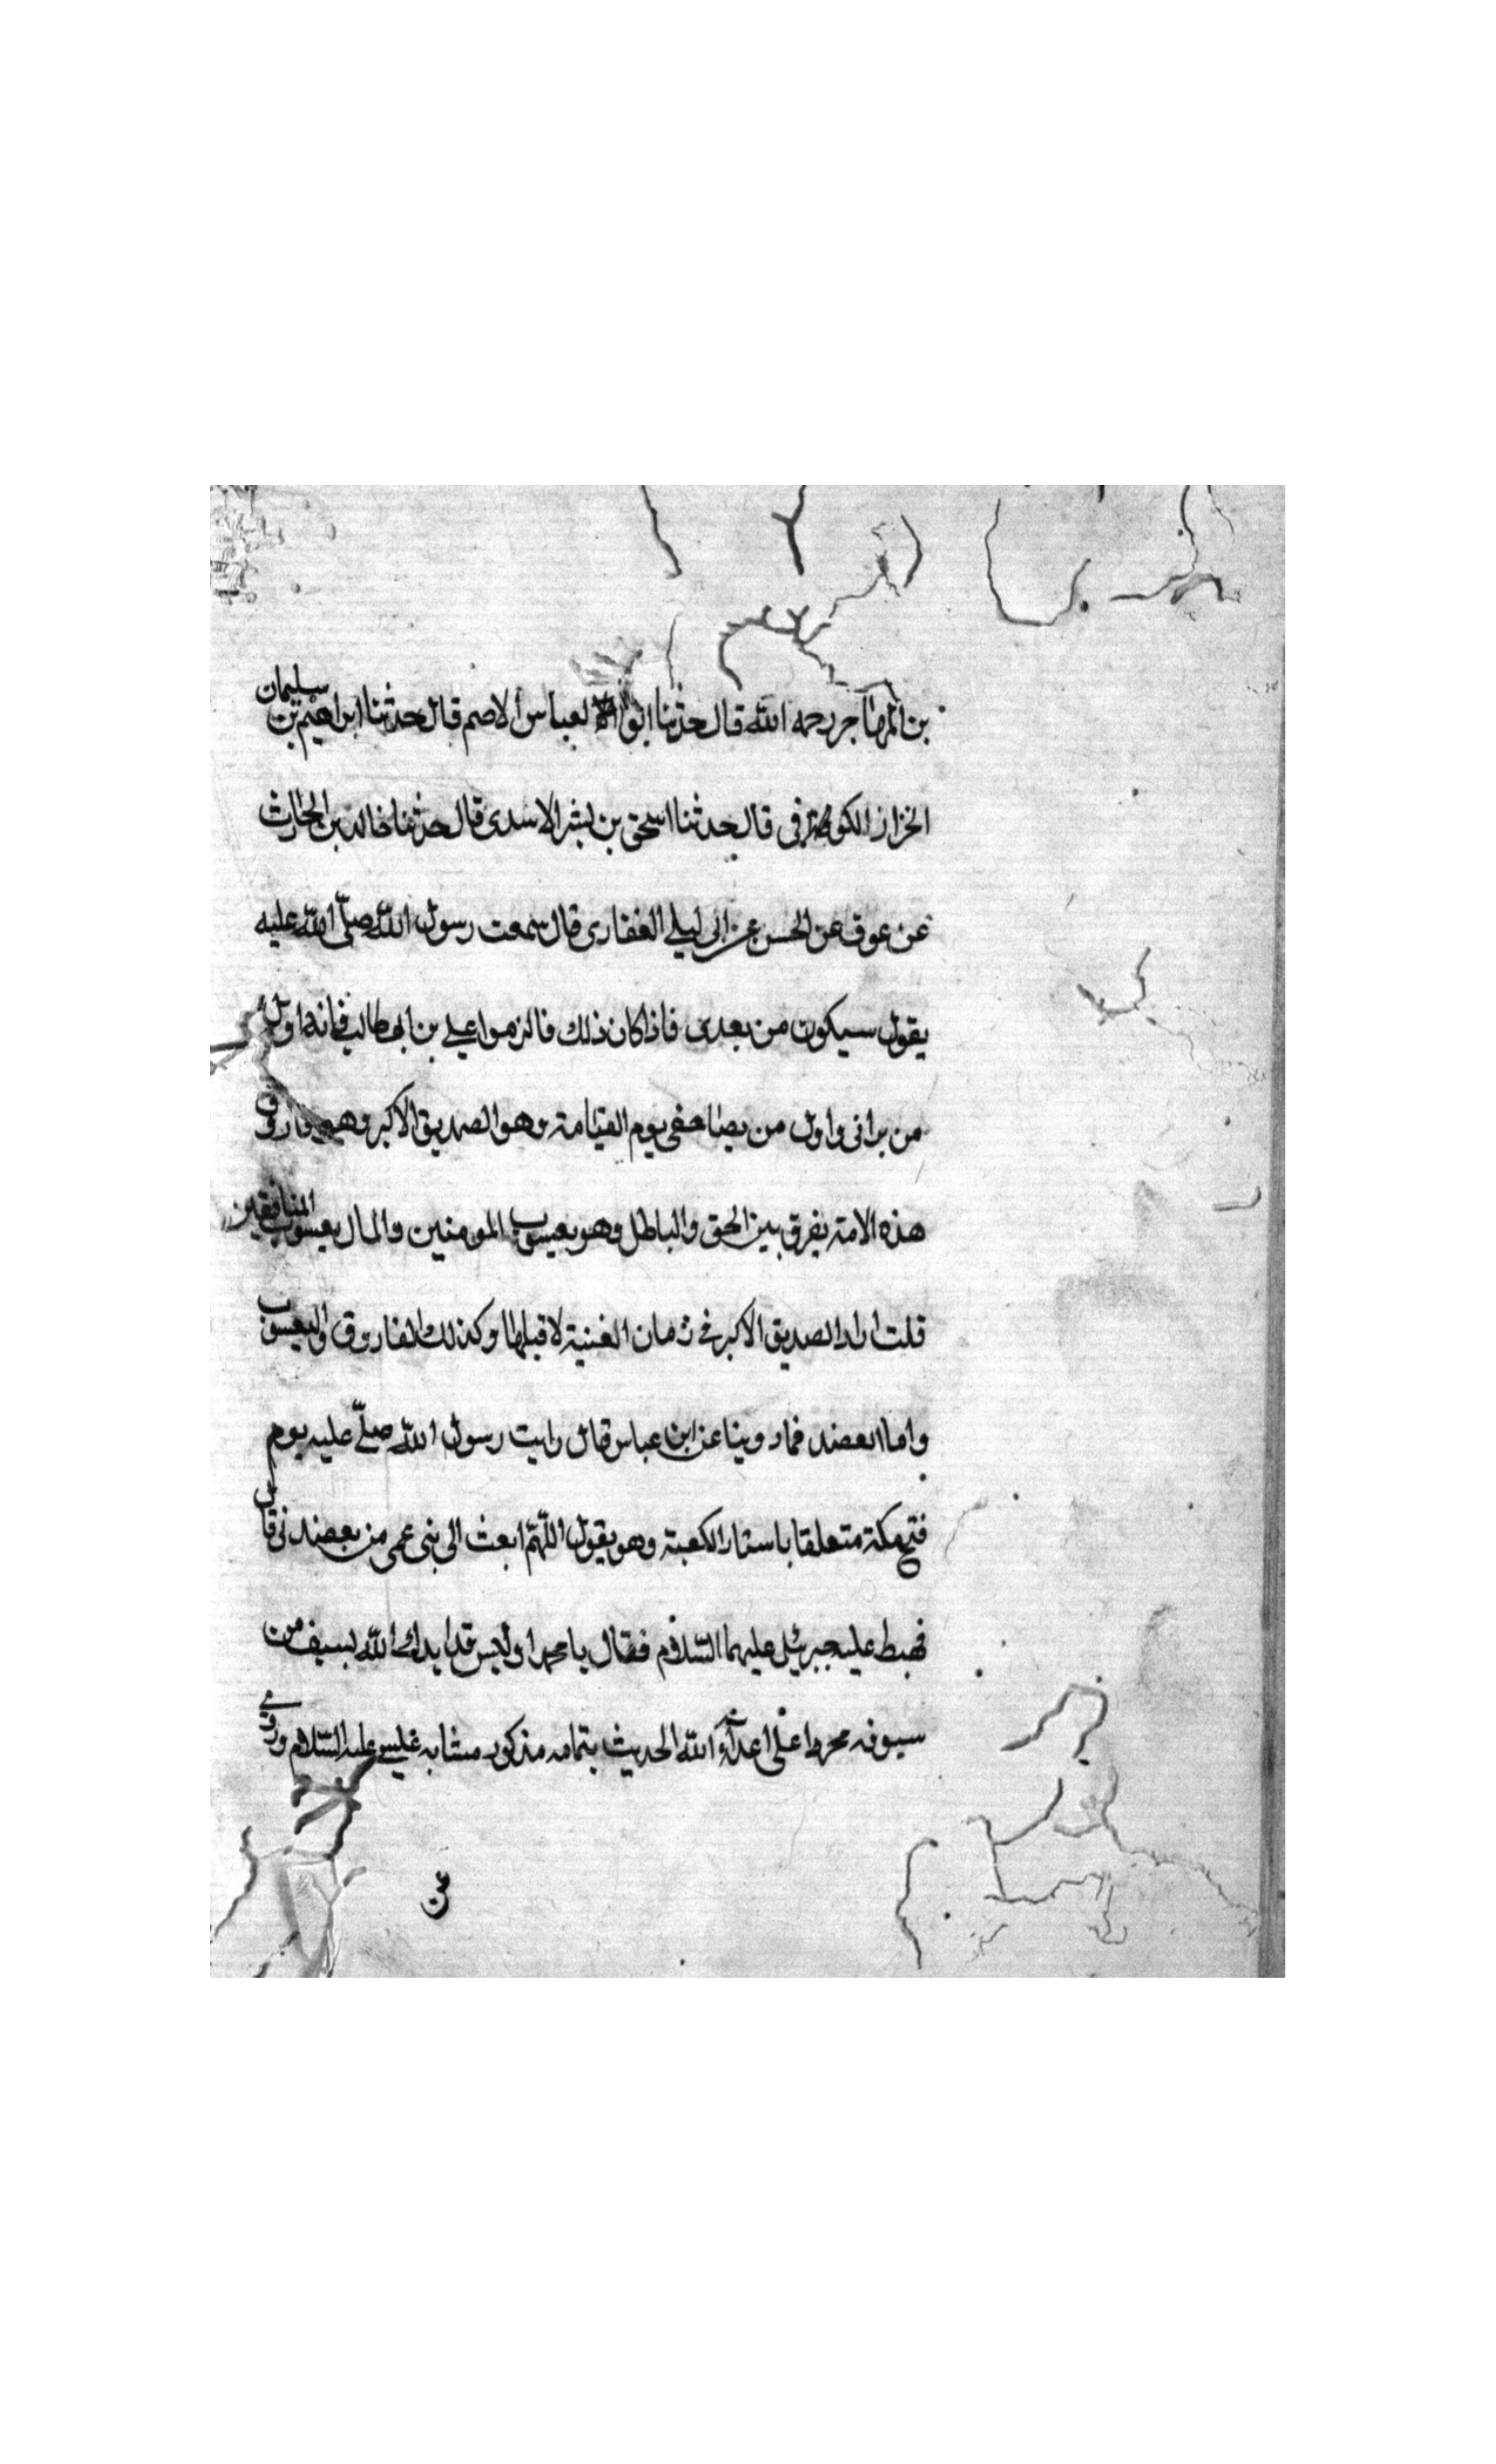 بن المهاجر رحمه الله قال حدثنا ابو العباس الاصم قال حدثنا ابراهيم بن سليمان
الخزاز الكوفى قال حدثنا اسحق بن بشر الاسدى قال حدثنا خالد بن الحارث
عن عوف عن الحسن عن ابى ليلى الغفارى قال سمعت رسول الله صلى الله عليه
يقول سيكون من بعدى فاذا كان ذلك فالزموا على بن ابى طالب فانه اول
من يرانى واول من يصافحنى يوم القيامة وهو الصديق الاكبر وهو فاروق
هذه الامة يفرق بين الحق والباطل وهو يعسوب المومنين والمال يعسوب المنافقين
قلت اراد الصديق الاكبر فى زمان الفتنة لا قبلها وكذلك الفاروق واليعسوب
واما العضد فما روينا عن ابن عباس قال رايت رسول الله صلى عليه يوم
فتح مكة متعلقا باستار الكعبة وهو يقول اللهم ابعث الى بنى عمى من يعضدنى قال
فهبط عليه جبرئيل عليهما السلام فقال يا محمد اوليس قد ايدك الله بسيف من
سيوفه مجرد على اعداء الله الحديث بتمامه مذكور مشابه عليه السلام وروى
عن